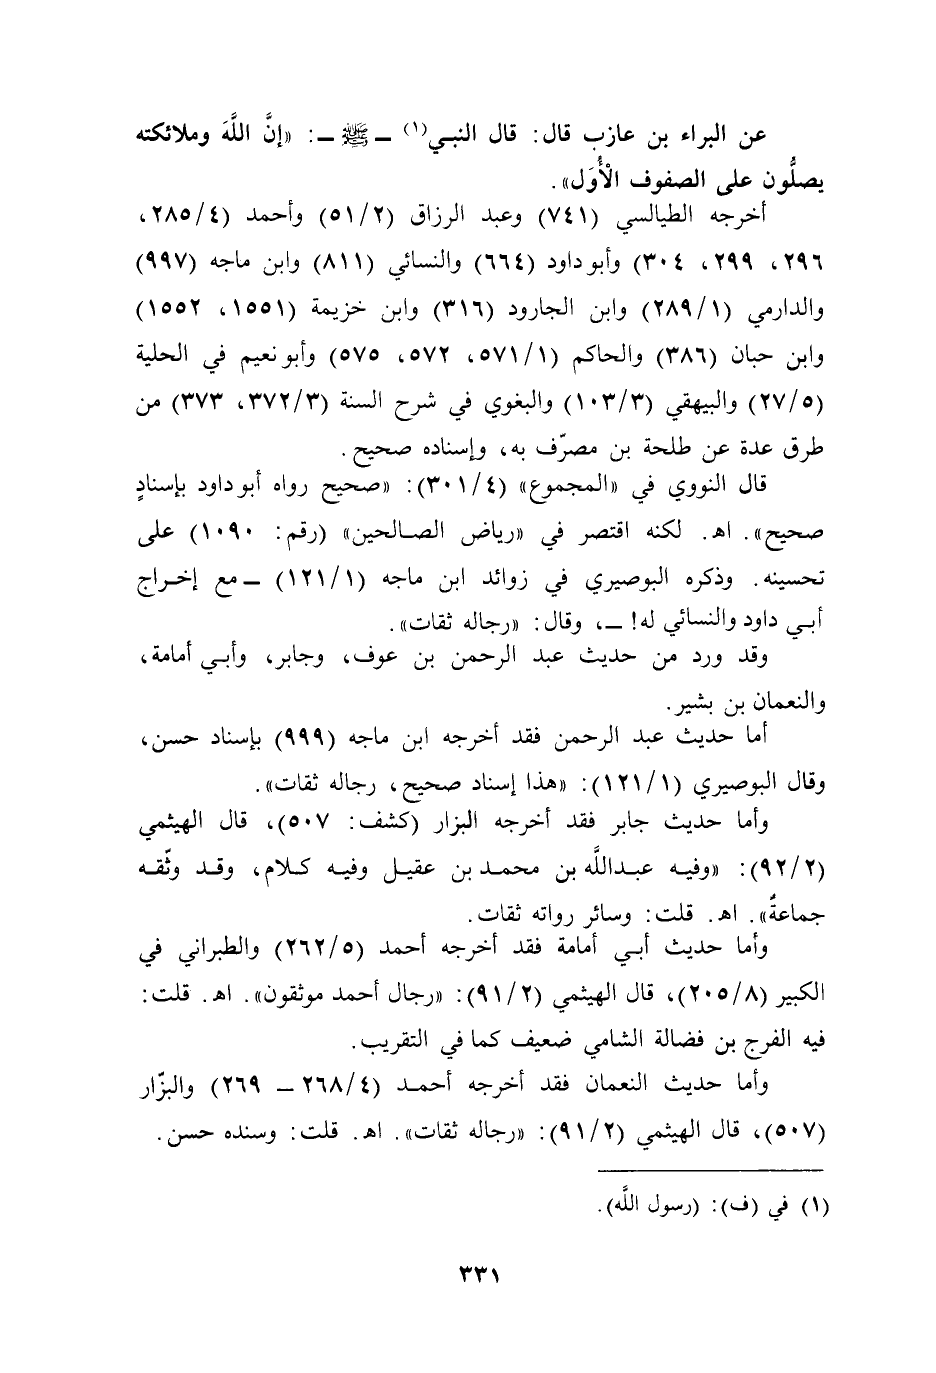 عن البراء بن عازب قال: قال النبـي(١) ـ ﷺ ـ: «إنَّ اللَّهَ وملائكته
يصلُّون على الصفوف الْأُوَل».
أخرجه الطيالسي (٧٤١) وعبد الرزاق (٥١/٢) وأحمد (٢٨٥/٤،
٢٩٦، ٢٩٩، ٣٠٤) وأبو داود (٦٦٤) والنسائي (٨١١) وابن ماجه (٩٩٧)
والدارمي (٢٨٩/١) وابن الجارود (٣١٦) وابن خزيمة (١٥٥١، ١٥٥٢)
وابن حبان (٣٨٦) والحاكم (٥٧١/١، ٥٧٢، ٥٧٥) وأبو نعيم في الحلية
(٢٧/٥) والبيهقي (١٠٣/٣) والبغوي في شرح السنة (٣٧٢/٣، ٣٧٣) من
طرق عدة عن طلحة بن مصرّف به، وإسناده صحيح.
قال النووي في «المجموع» (٣٠١/٤): «صحيح رواه أبو داود بإسنادٍ
صحيح». اهـ. لكنه اقتصر في «رياض الصـالحين» (رقم: ١٠٩٠) على
تحسينه. وذكره البوصيري في زوائد ابن ماجه (١٢١/١) ـ مع إخـراج
أبـي داود والنسائي له! ـ، وقال: «رجاله ثقات».
وقد ورد من حديث عبد الرحمن بن عوف، وجابر، وأبـي أمامة،
والنعمان بن بشير.
أما حديث عبد الرحمن فقد أخرجه ابن ماجه (٩٩٩) بإسناد حسن،
وقال البوصيري (١٢١/١): «هذا إسناد صحيح، رجاله ثقات».
وأما حديث جابر فقد أخرجه البزار (كشف: ٥٠٧)، قال الهيثمي
(٩٢/٢): «وفيـه عبـداللَّه بن محمـد بن عقيـل وفيـه كـلام، وقـد وثّقـه
جماعةٌ». اهـ. قلت: وسائر رواته ثقات.
وأما حديث أبـي أمامة فقد أخرجه أحمد (٢٦٢/٥) والطبراني في
الكبير (٢٠٥/٨)، قال الهيثمي (٩١/٢): «رجال أحمد موثقون». اهـ. قلت:
فيه الفرج بن فضالة الشامي ضعيف كما في التقريب.
وأما حديث النعمان فقد أخرجه أحمـد (٢٦٨/٤ ـ ٢٦٩) والبزّار
(٥٠٧)، قال الهيثمي (٩١/٢): «رجاله ثقات». اهـ. قلت: وسنده حسن.
(١) في (ف): (رسول اللَّه).
٣٣١